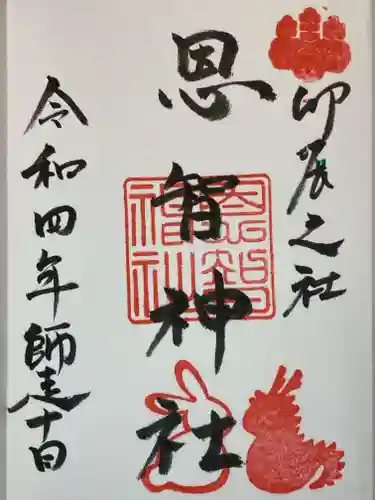 卯辰之社
恩智神社
恩智
神社
令和四年師走十日